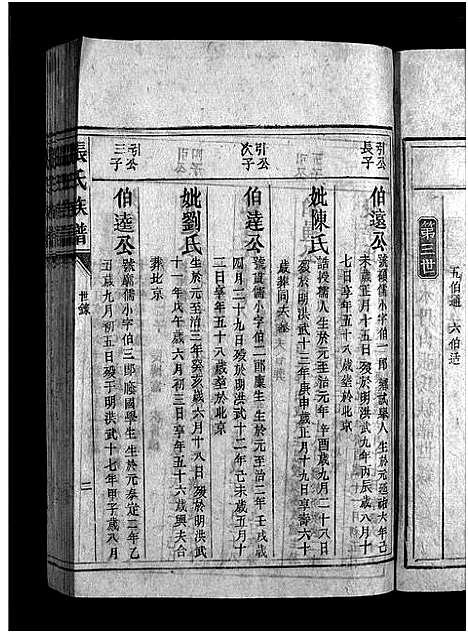 五伯通 六伯适
第三世
引公長子
伯遠公
號碩儒小字伯一郎鄉試舉人生於元延祐六年己未歲正月十五日歿於明洪武九年丙辰歲八月十七日享年五十八歲塟於北京
妣陳氏
誥授孺人生於元至治元年辛酉歲九月二十八日歿於明洪武十三年庚申歲正月十九日享壽六十歲葬同夫
引公次子
伯達公
號貢儒小字伯二郎廩生生於元至治二年壬戌歲四月二十九日歿於明洪武十二年己未歲五月十二日享年五十八歲塟於北京
妣劉氏
生於元至治三年癸亥歲六月十八日歿於明洪武十一年戊午歲六月初三日享年五十六歲與夫合葬北京
引公三子
伯逵公
號廣儒小字伯三郎癊國學生生於元泰定二年乙丑歲九月初五日歿于明洪武十七年甲子歲八月
張氏族譜
世錄
二